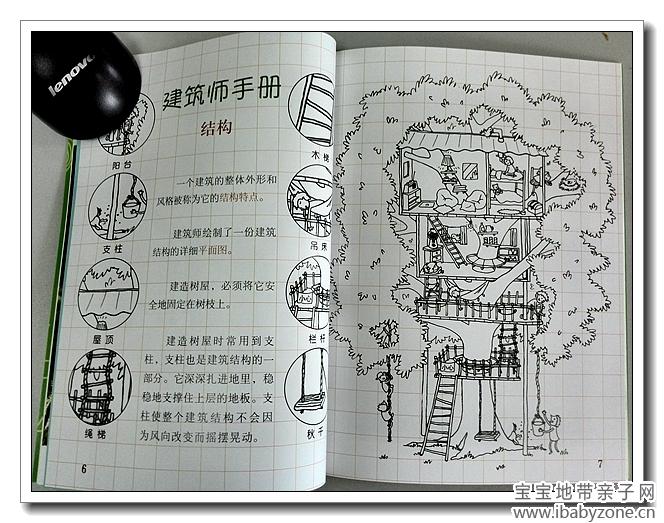 lenovo
建筑师手册
结构
阳台
支柱
屋顶
绳梯
一个建筑的整体外形和
风格被称为它的结构特点。
建筑师绘制了一份建筑
结构的详细平面图。
建造树屋，必须将它安
全地固定在树枝上。
建造树屋时常用到支
柱，支柱也是建筑结构的一
部分。它深深扎进地里，稳
稳地支撑住上层的地板。支
柱使整个建筑结构不会因
为风向改变而摇摆晃动。
木梯
吊床
栏杆
秋千
6
7
宝宝地带亲子网
www.ibabyzone.cn